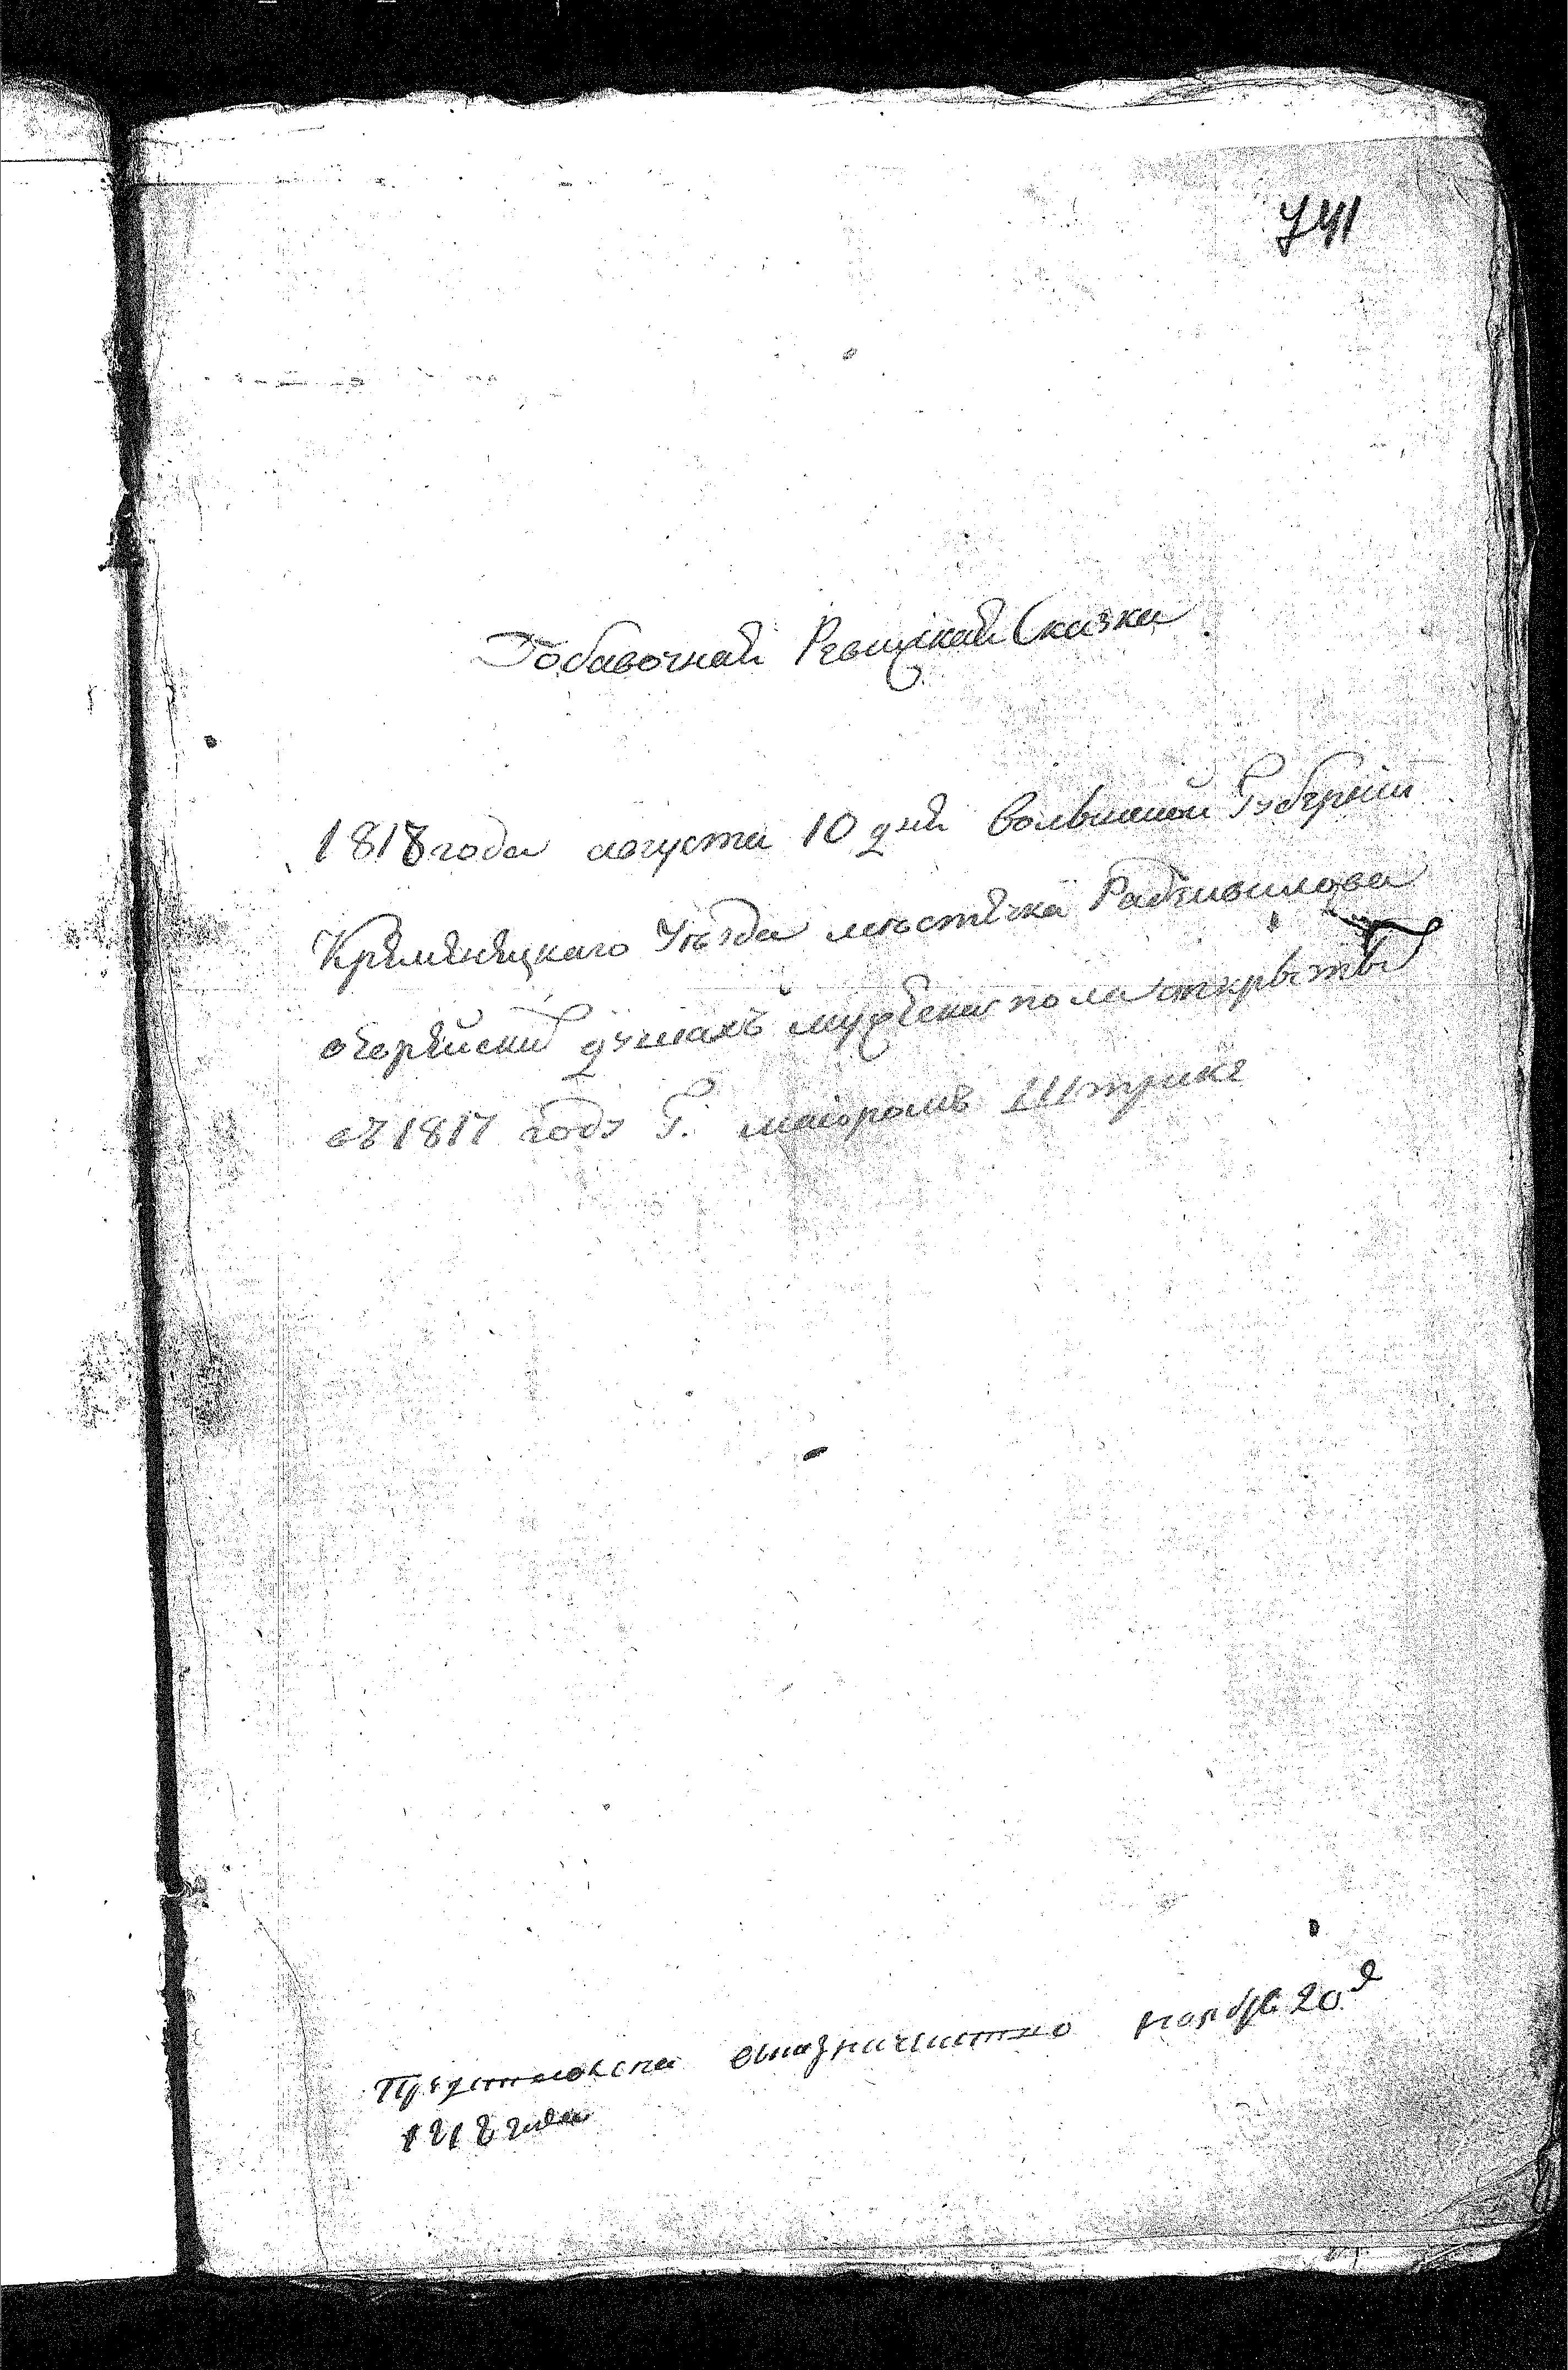 741
Добавочная Ревижкая Сказка
1818 года августа 10 дня Волынской Губернии
Кремянецкаго Уѣзда мѣстечка Радзивилова
о Еврейски душахъ мужеска пола открыты
въ 1817 году Г. маіоромъ Штрике
ноября 20
1818 года